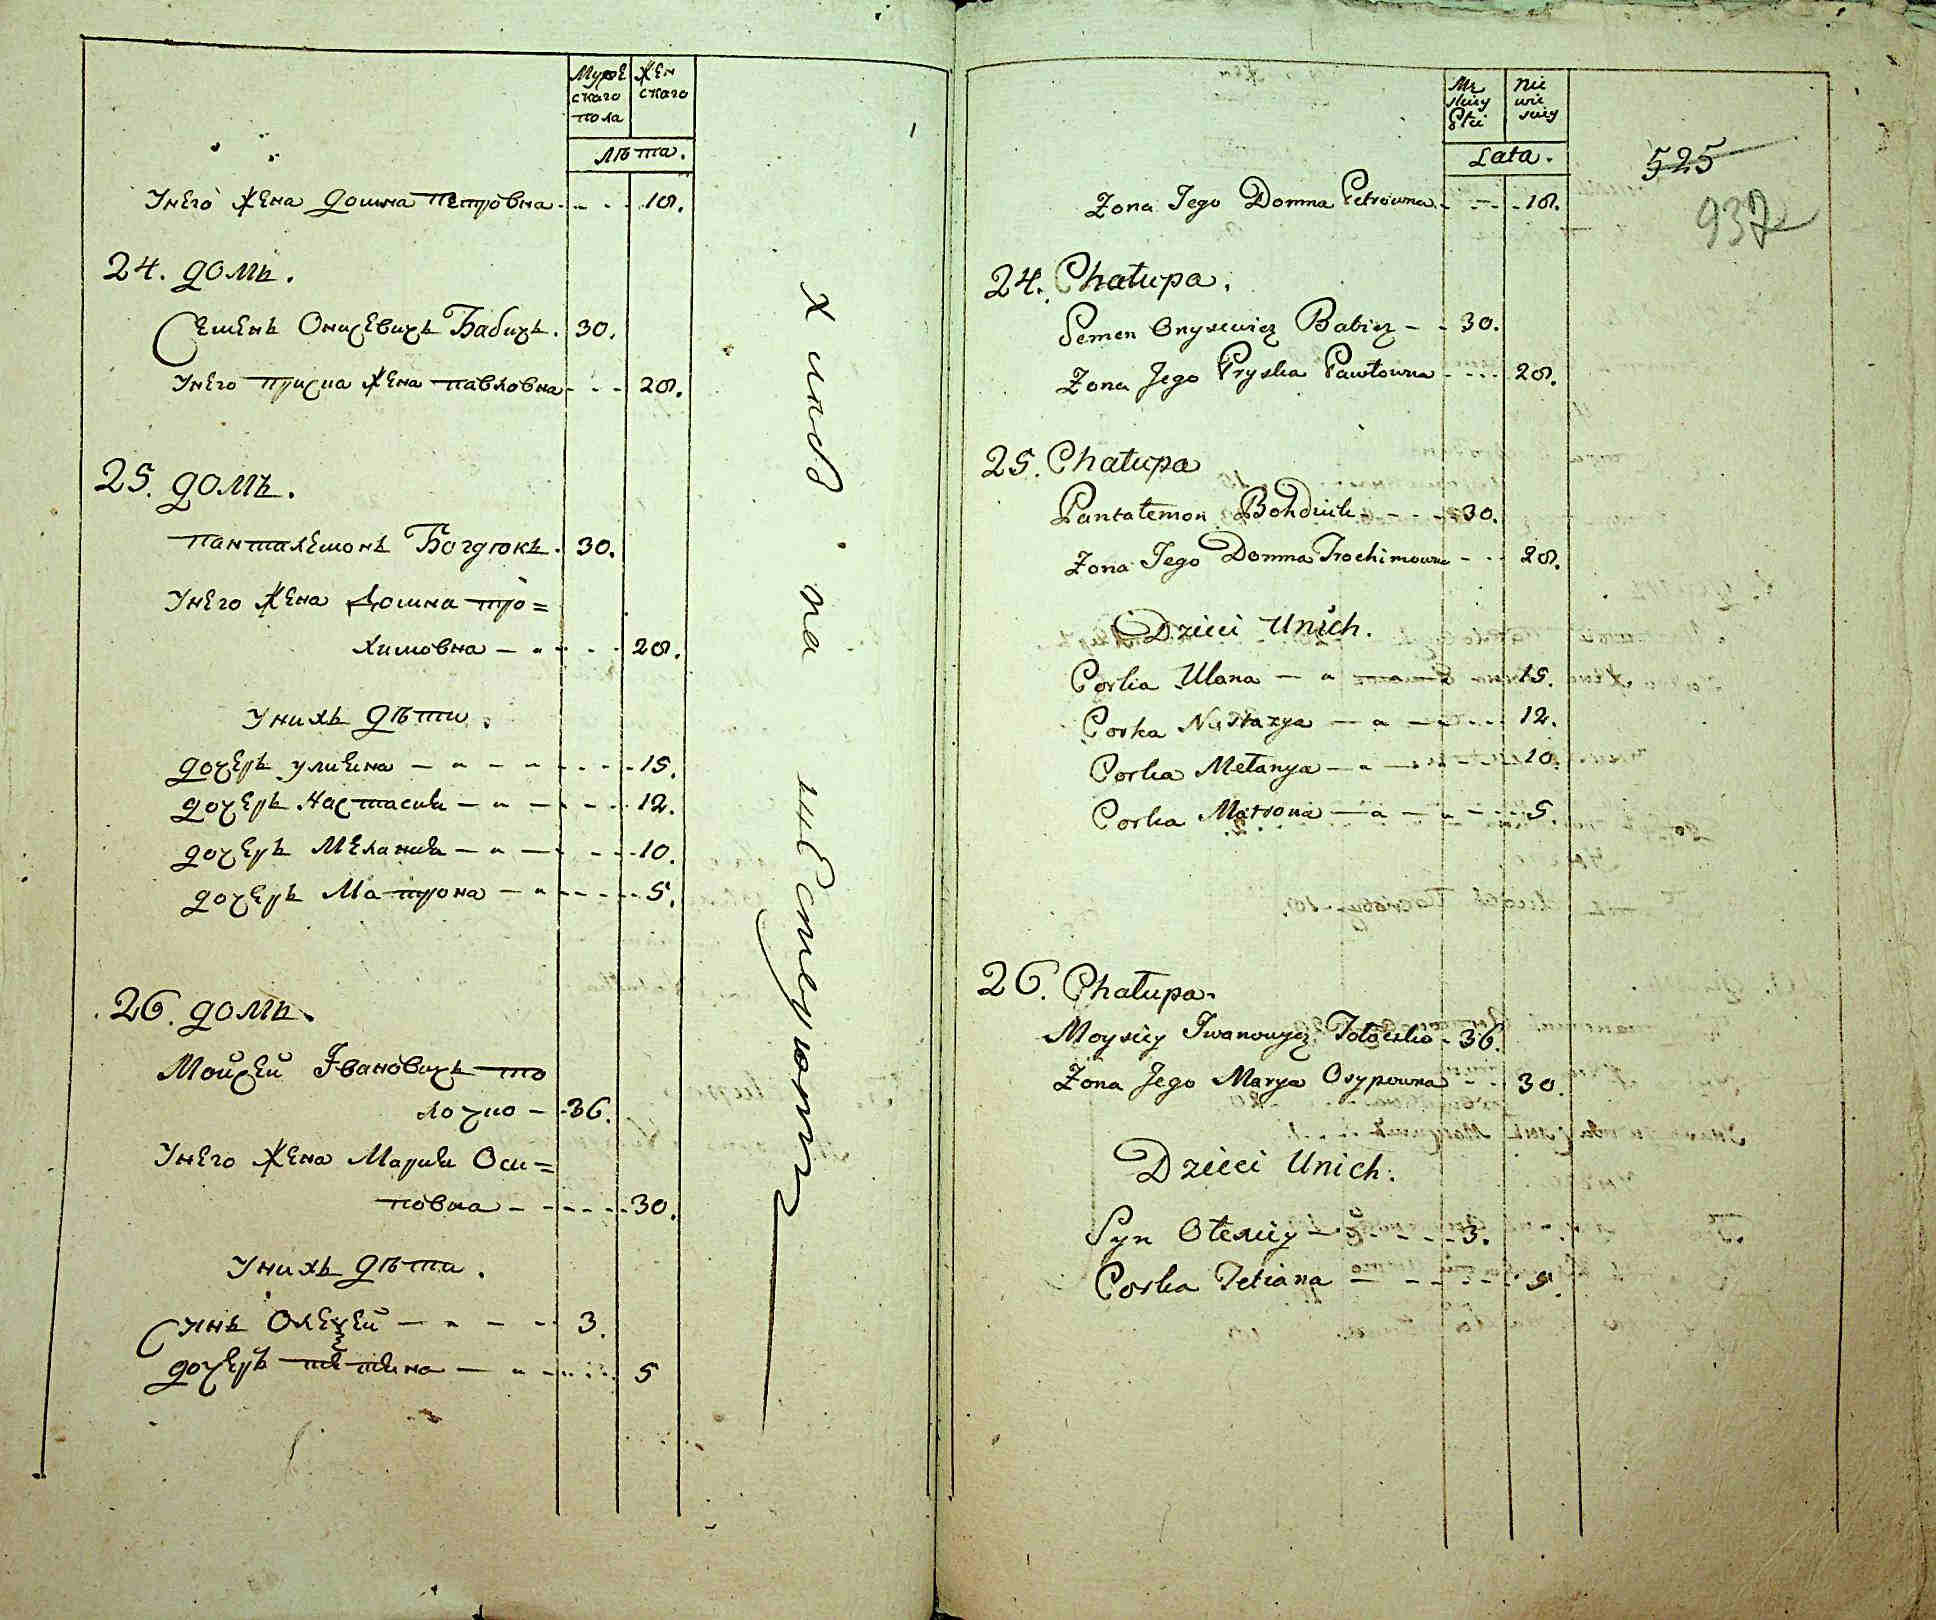 Муже
скаго
пола
Жен
скаго
Лѣта.
Унего жена домна петровна - - - 18.
24. домъ.
Семенъ Онисевичъ Бабичъ. 30.
Унего приска жена павловна - - - 28.
25. домъ.
панталемонъ Богдюкъ. 30.
Унего жена домна тро=
химовна - - - - 28.
Унихъ дѣти.
дочерь улияна - - - - 15.
дочерь Настасия - - - - 12.
дочерь Мелания - - - - 10.
дочерь Матрона - - - - 5.
26. домъ.
Мойсей Ивановичъ то
лочко - 36.
Унего жена Мария Оси=
повна - - - - 30.
Унихъ дѣти.
Сынъ Олексей - - - - 3.
дочерь тетияна - - - - 5
на
Mę
skiey
Płci
Nie
wie
sciey
Lata.
525
937
Zona Jego Domna Petrowna - - - 18.
24. Chałupa.
Semen Onysewicz Babicz - - 30.
Zona Jego Pryska Pawłowna - - - 28.
25. Chałupa
Pantałemon Bohdiuk - - - 30.
Zona Jego Domna Trochimowna - - - 28.
Dzieci Unich.
Corka Ulana - - - - 15.
Corka Nastazya - - - - 12.
Corka Mełanya - - - - 10.
Corka Matrona - - - - 5.
26. Chałupa.
Moysiey Iwanowycz Tołoczko - 36.
Zona Jego Marya Osypowna - - 30.
Dzieci Unich.
Syn Ołexiey - - - - 3.
Corka Tetiana - - - - 5.